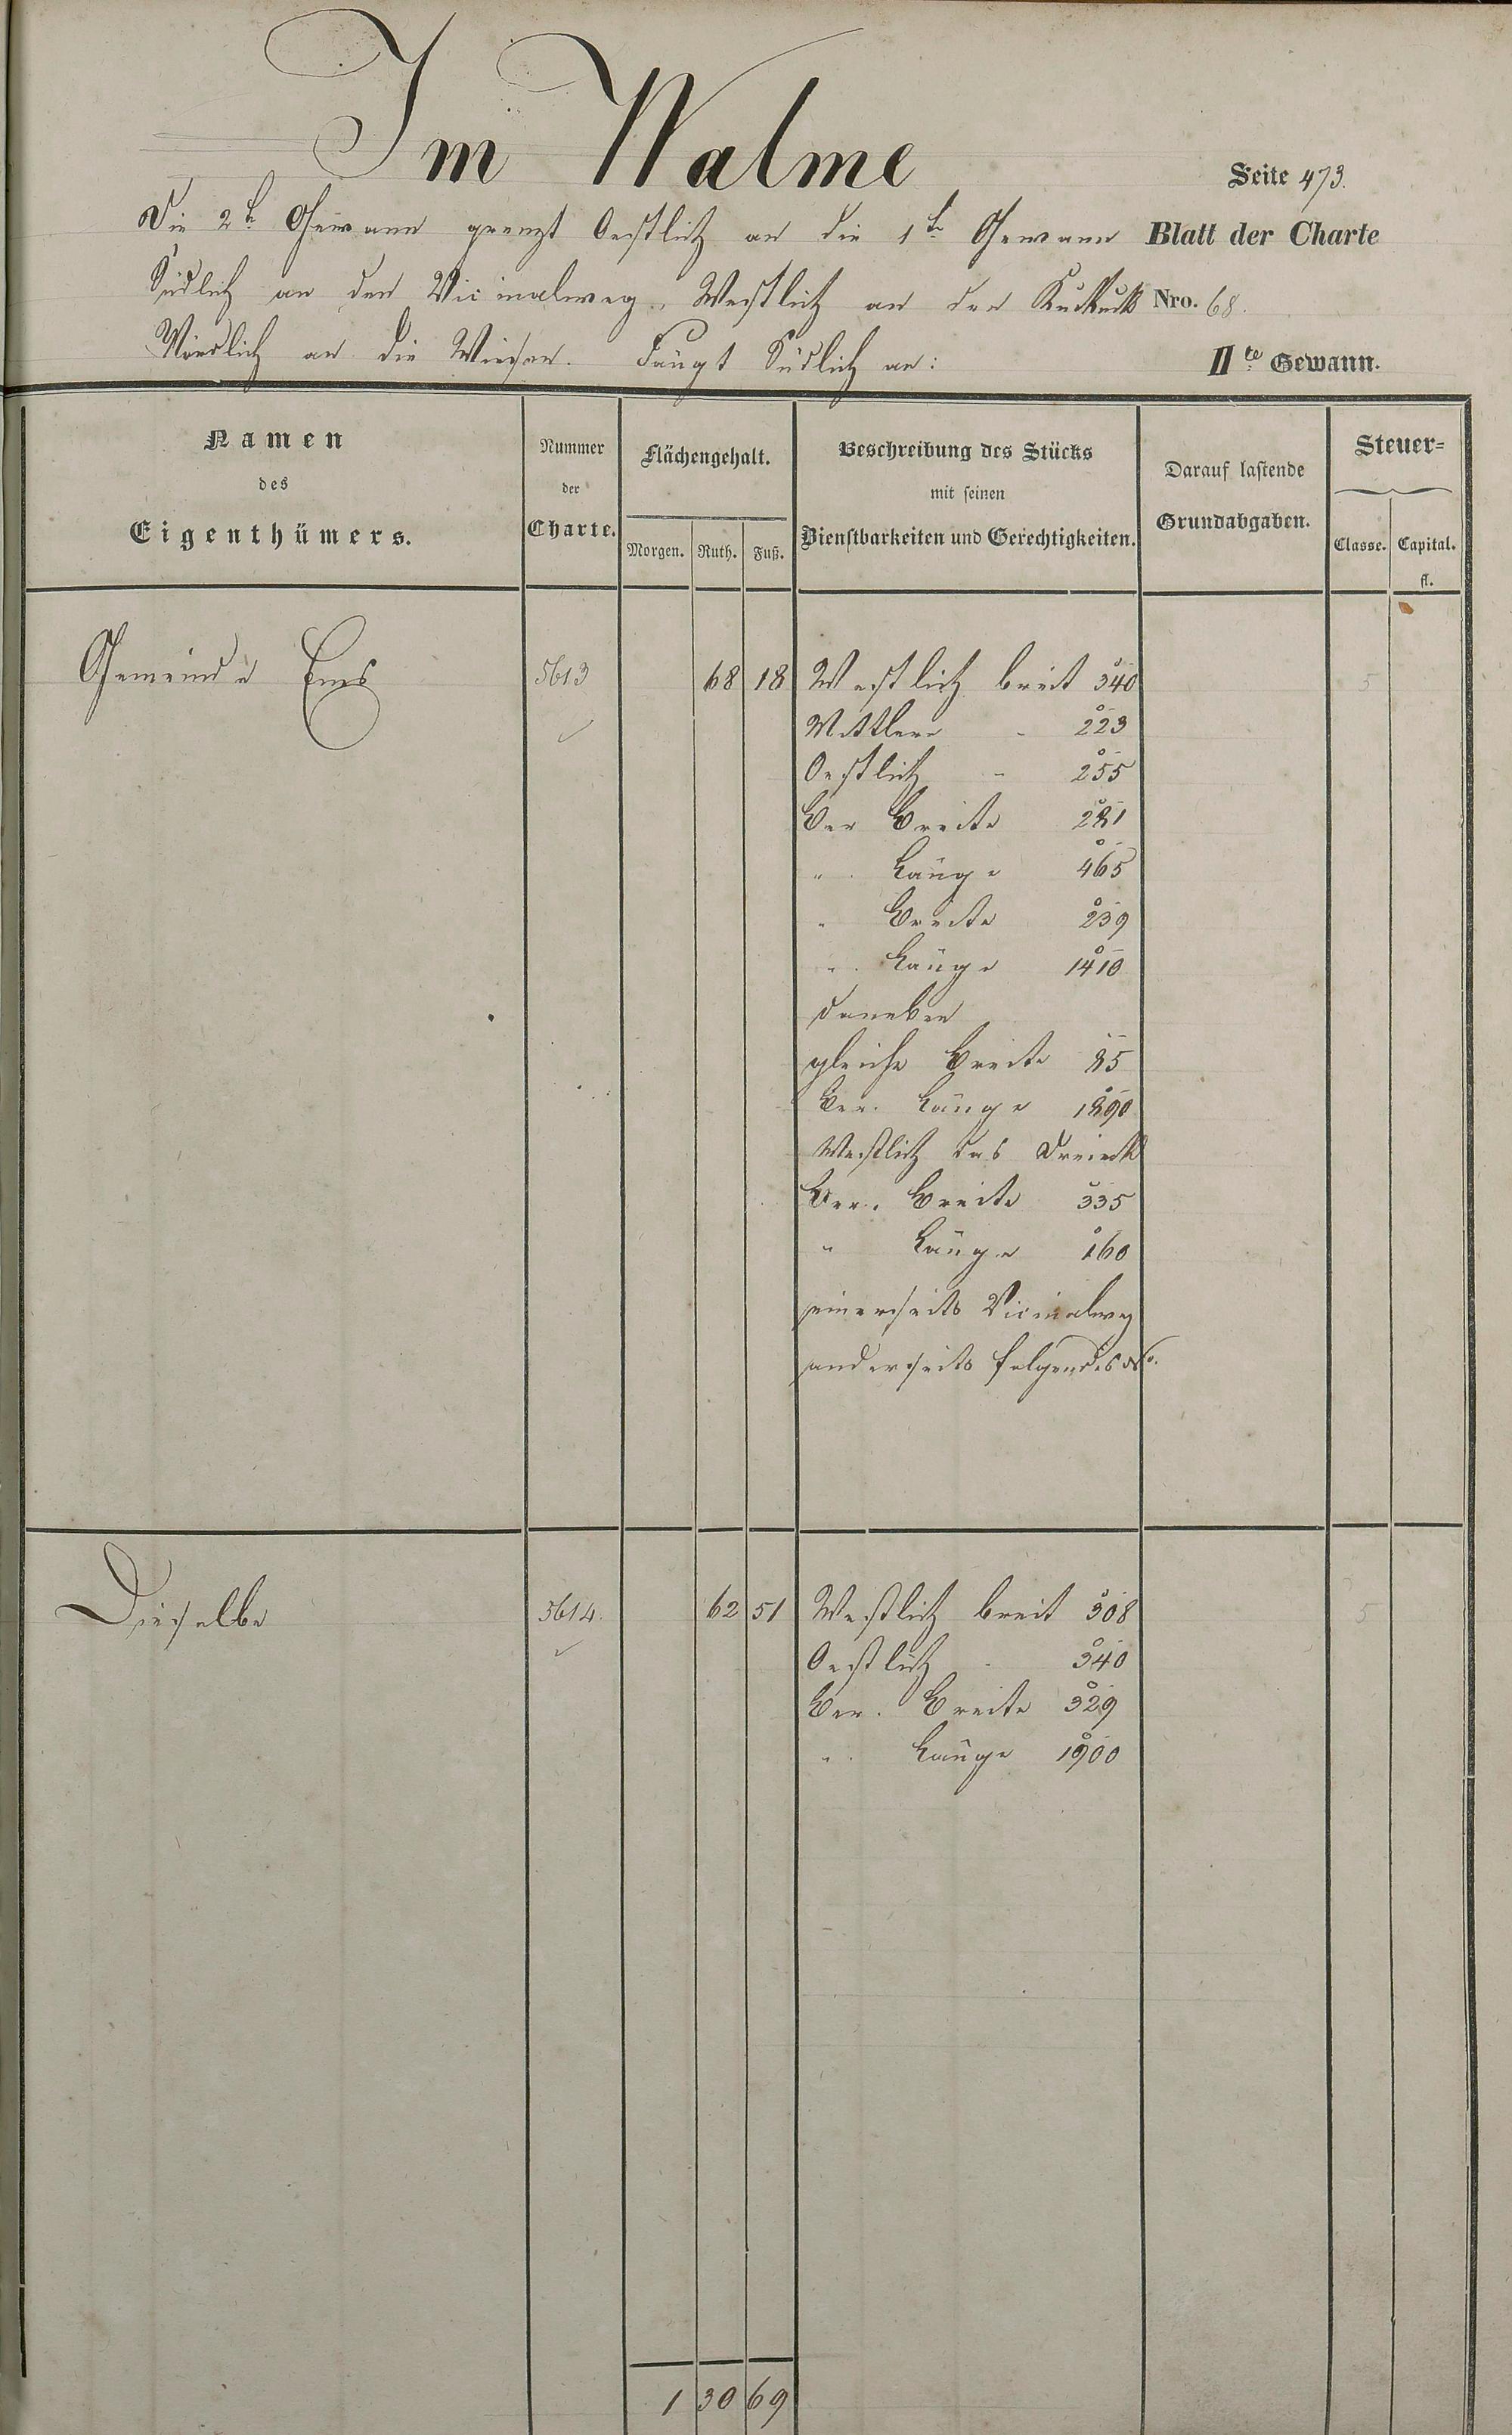 Im Walme
Seite 473.
Die 2te Gewann grenzt Oestlich an die 1te Gewann
Blatt der Charte
Südlich an den Vicinalweg, Westlich an den Kuckuck
Nro. 68.
Nördlich an die Wiesen. Fängt Südlich an:
IIte Gewann.
Namen
des
Eigenthümers.
Nummer
der
Charte.
Flächengehalt.
Morgen. Ruth. Fuß.
Beschreibung des Stücks
mit seinen
Dienstbarkeiten und Gerechtigkeiten.
Darauf lastende
Grundabgaben.
Steuer=
Classe. Capital.
fl.
Gemeinde Ems 5613 68 18 Westlich breit 340 5
Mittlere - 223
Oestlich - 255
Ber Breite 281
" Länge 465
" Breite 239
" Länge 1410
daneben
gleiche Breite 85
Ber. Länge 1890
Westlich das Dreieck
Ber. Breite 335
" Länge 160
einerseits Vicinalweg
anderseits folgendes No.
Dieselbe 5614. 62 51 Westlich breit 308 5
Oestlich - 340
Ber. Breite 329
" Länge 1900
1 30 69